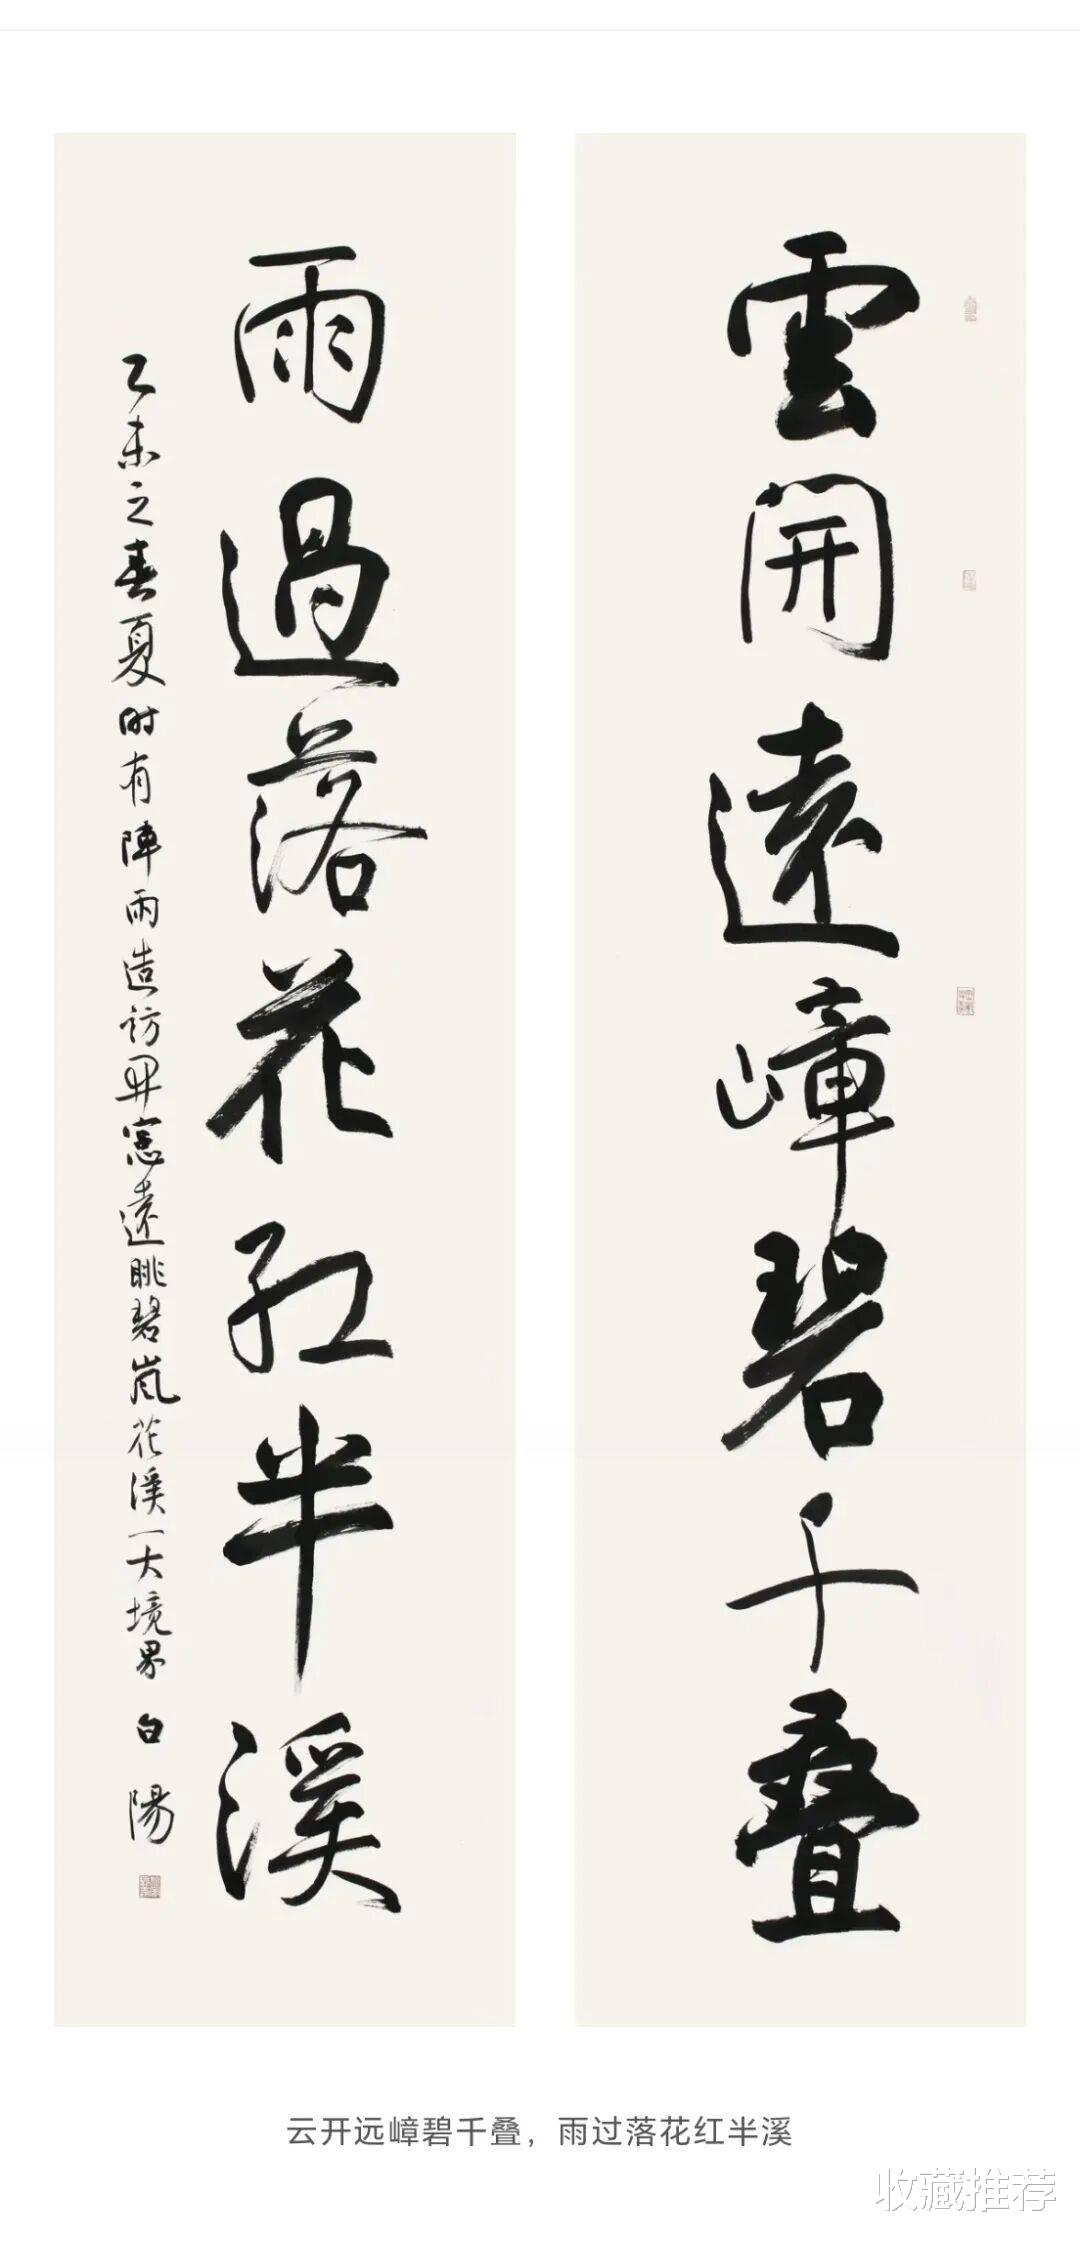 雲開遠嶂碧千叠
雨過落花红半溪
乙未之春夏时有陣雨造访開窓遠眺碧嵐花溪一大境界 白陽
云开远嶂碧千叠，雨过落花红半溪
收藏推荐